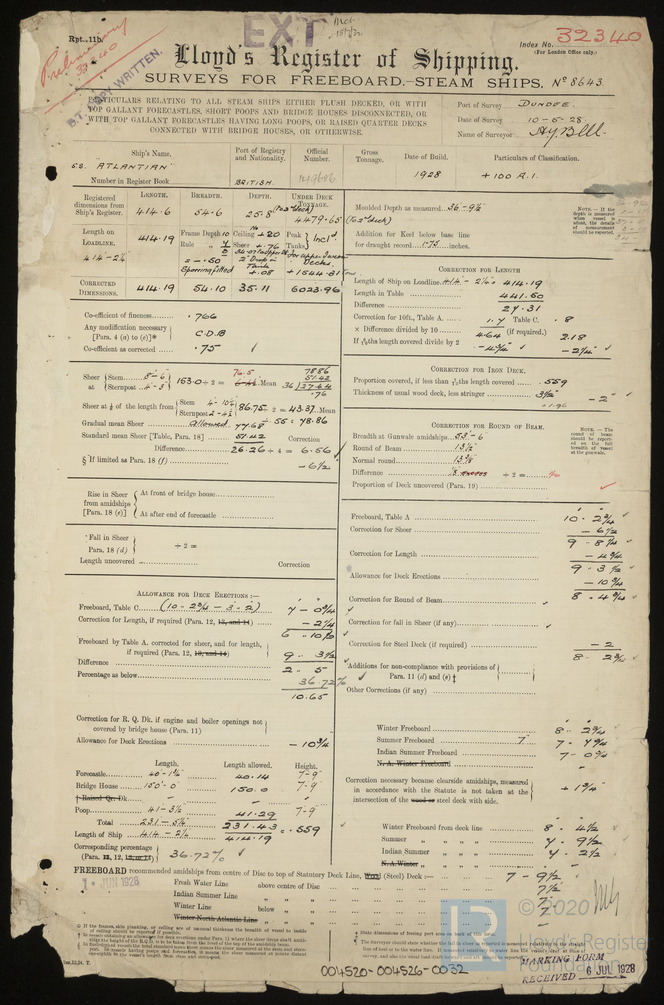 Rpt. 11b.
Preliminary
EXT
32340
Index No.
(For London Office only.)
Lloyd's Register of Shipping.
SURVEYS FOR FREEBOARD.—STEAM SHIPS. No 8643
PARTICULARS RELATING TO ALL STEAM SHIPS EITHER FLUSH DECKED, OR WITH
TOP GALLANT FORECASTLES, SHORT POOPS AND BRIDGE HOUSES DISCONNECTED, OR
WITH TOP GALLANT FORECASTLES HAVING LONG POOPS, OR RAISED QUARTER DECKS
CONNECTED WITH BRIDGE HOUSES, OR OTHERWISE.
Port of Survey DUNDEE.
Date of Survey 10-5-28
Name of Surveyor
Ship's Name. Port of Registry and Nationality. Official Number. Gross Tonnage. Date of Build. Particulars of Classification.
S.S. ATLANTIAN BRITISH 1928 +100 A.1.
Number in Register Book
LENGTH. BREADTH. DEPTH. UNDER DECK TONNAGE.
Registered dimensions from Ship's Register. 414.6 54.6 25.8 4479.65
Length on LOADLINE. 414.19 Frame Depth Ceiling +.20 Peak Tanks Incl
414-2¼ Rule Sheer +.76
Sparring fitted +.08 +1544.31
CORRECTED DIMENSIONS. 414.19 54.10 35.11 6023.96
Moulded Depth as measured 36-9½
Addition for Keel below base line
for draught record 1.75 inches.
Co-efficient of fineness .766
Any modification necessary [Para. 4 (a) to (e)]* C.D.B
Co-efficient as corrected .75
CORRECTION FOR LENGTH
Length of Ship on Loadline 414-2¼ = 414.19
Length in Table 441.50
Difference 27.31
Correction for 10ft., Table A. 1.7 Table C. .8
× Difference divided by 10 4.64 (if required.) 2.18
If 6/10ths length covered divide by 2 -4¾ -2¼
Sheer at Stem 8-6 Sternpost 4-3 153.0÷2 = 76.5 Mean
Sheer at ⅛ of the length from Stem Sternpost 86.75÷2 = 43.37 Mean
Gradual mean Sheer Allowed 77.68 ÷ .55 = 78.86
Standard mean Sheer [Table, Para. 18] 51.42 Correction
Difference 26.26÷4 = 6.56
§ If limited as Para. 18 (f) -6½
CORRECTION FOR IRON DECK.
Proportion covered, if less than 7/10ths length covered .559
Thickness of usual wood deck, less stringer 3½ -2
CORRECTION FOR ROUND OF BEAM.
Breadth at Gunwale amidships 53-6
Round of Beam 13½
Normal round 13⅜
Difference ÷2 =
Proportion of Deck uncovered (Para. 19)
Rise in Sheer from amidships [Para. 18 (e)]
At front of bridge house
At after end of forecastle
Fall in Sheer Para. 18 (d) ÷2 =
Length uncovered Correction
Freeboard, Table A 10-2¾
Correction for Sheer -6½
9-8¼
Correction for Length -4¾
9-3½
Allowance for Deck Erections -10¾
8-4¾
Correction for Round of Beam
Correction for fall in Sheer (if any)
Correction for Steel Deck (if required) -2
8-2¾
Additions for non-compliance with provisions of Para. 11 (d) and (e) †
Other Corrections (if any)
ALLOWANCE FOR DECK ERECTIONS:—
Freeboard, Table C (10-2¾ - 3-2) 7-0¾
Correction for Length, if required (Para. 12, 13, and 14) -2¼
6-10½
Freeboard by Table A. corrected for sheer, and for length, if required (Para. 12, 13, and 14) 9-3½
Difference 2-5
Percentage as below 36.72%
10.65
Correction for R. Q. Dk. if engine and boiler openings not covered by bridge house (Para. 11)
Allowance for Deck Erections -10¾
Length. Length allowed. Height.
Forecastle 40-1¾ 40.14 7-9
Bridge House 150-0 150.0 7-9
† Raised Qr. Dk.
Poop 41-3½ 41.29 7-9
Total 231-5¼ 231.43 = .559
Length of Ship 414-2¼ 414.19
Corresponding percentage (Para. 11, 12, 13, or 14) 36.72%
Winter Freeboard 8-2¾
Summer Freeboard 7-7¾
Indian Summer Freeboard 7-0¾
N. A. Winter Freeboard
Correction necessary because clearside amidships, measured
in accordance with the Statute is not taken at the
intersection of the wood or steel deck with side. +1¾
Winter Freeboard from deck line 8-4½
Summer 7-9½
Indian Summer 7-2½
N. A. Winter
FREEBOARD recommended amidships from centre of Disc to top of Statutory Deck Line, Wood (Steel) Deck:— 7-9½
Fresh Water Line above centre of Disc 7½
Indian Summer Line 7
Winter Line below 7
Winter North Atlantic Line
JUN 1928
© 2020
LR
Lloyd's Register
Foundation
004520-004526-0032
MARKING FORM
RECEIVED 6 JUL 1928